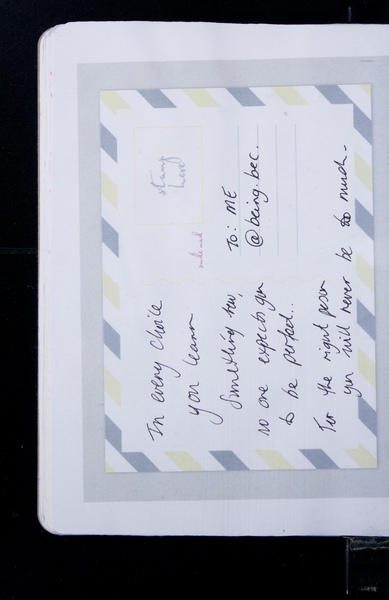 In every choice
you learn
Something new,
no one expects you
to be perfect..
For the right person
you will never be too much.
stamp
here
To: ME
@being.bec.